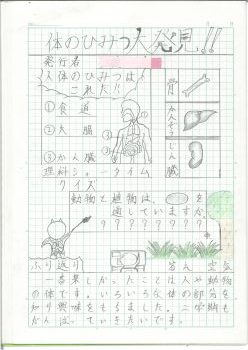 体のひみつ大発見!!
発行者
人体のひみつは
これだ!!
①食道
②大腸
③かん臓
①
②
③
骨
かんぞう
じん臓
理科ショータイム
クイズ
動物と植物は、
を
通していますか
？？？？？？？？
答え 空気
ふり返り
ことは人や動物
の体です。いろいろな体の部分を
知り興味をもちました。二学期も
がんばっていきたいです。